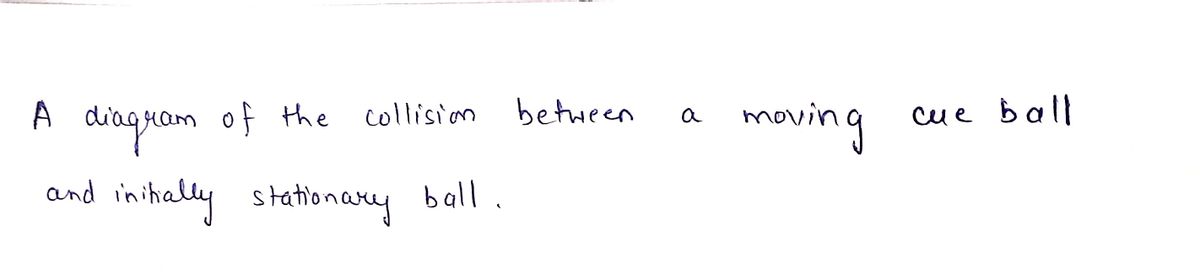 A diagram of the collision between a moving cue ball
and initally stationary ball.